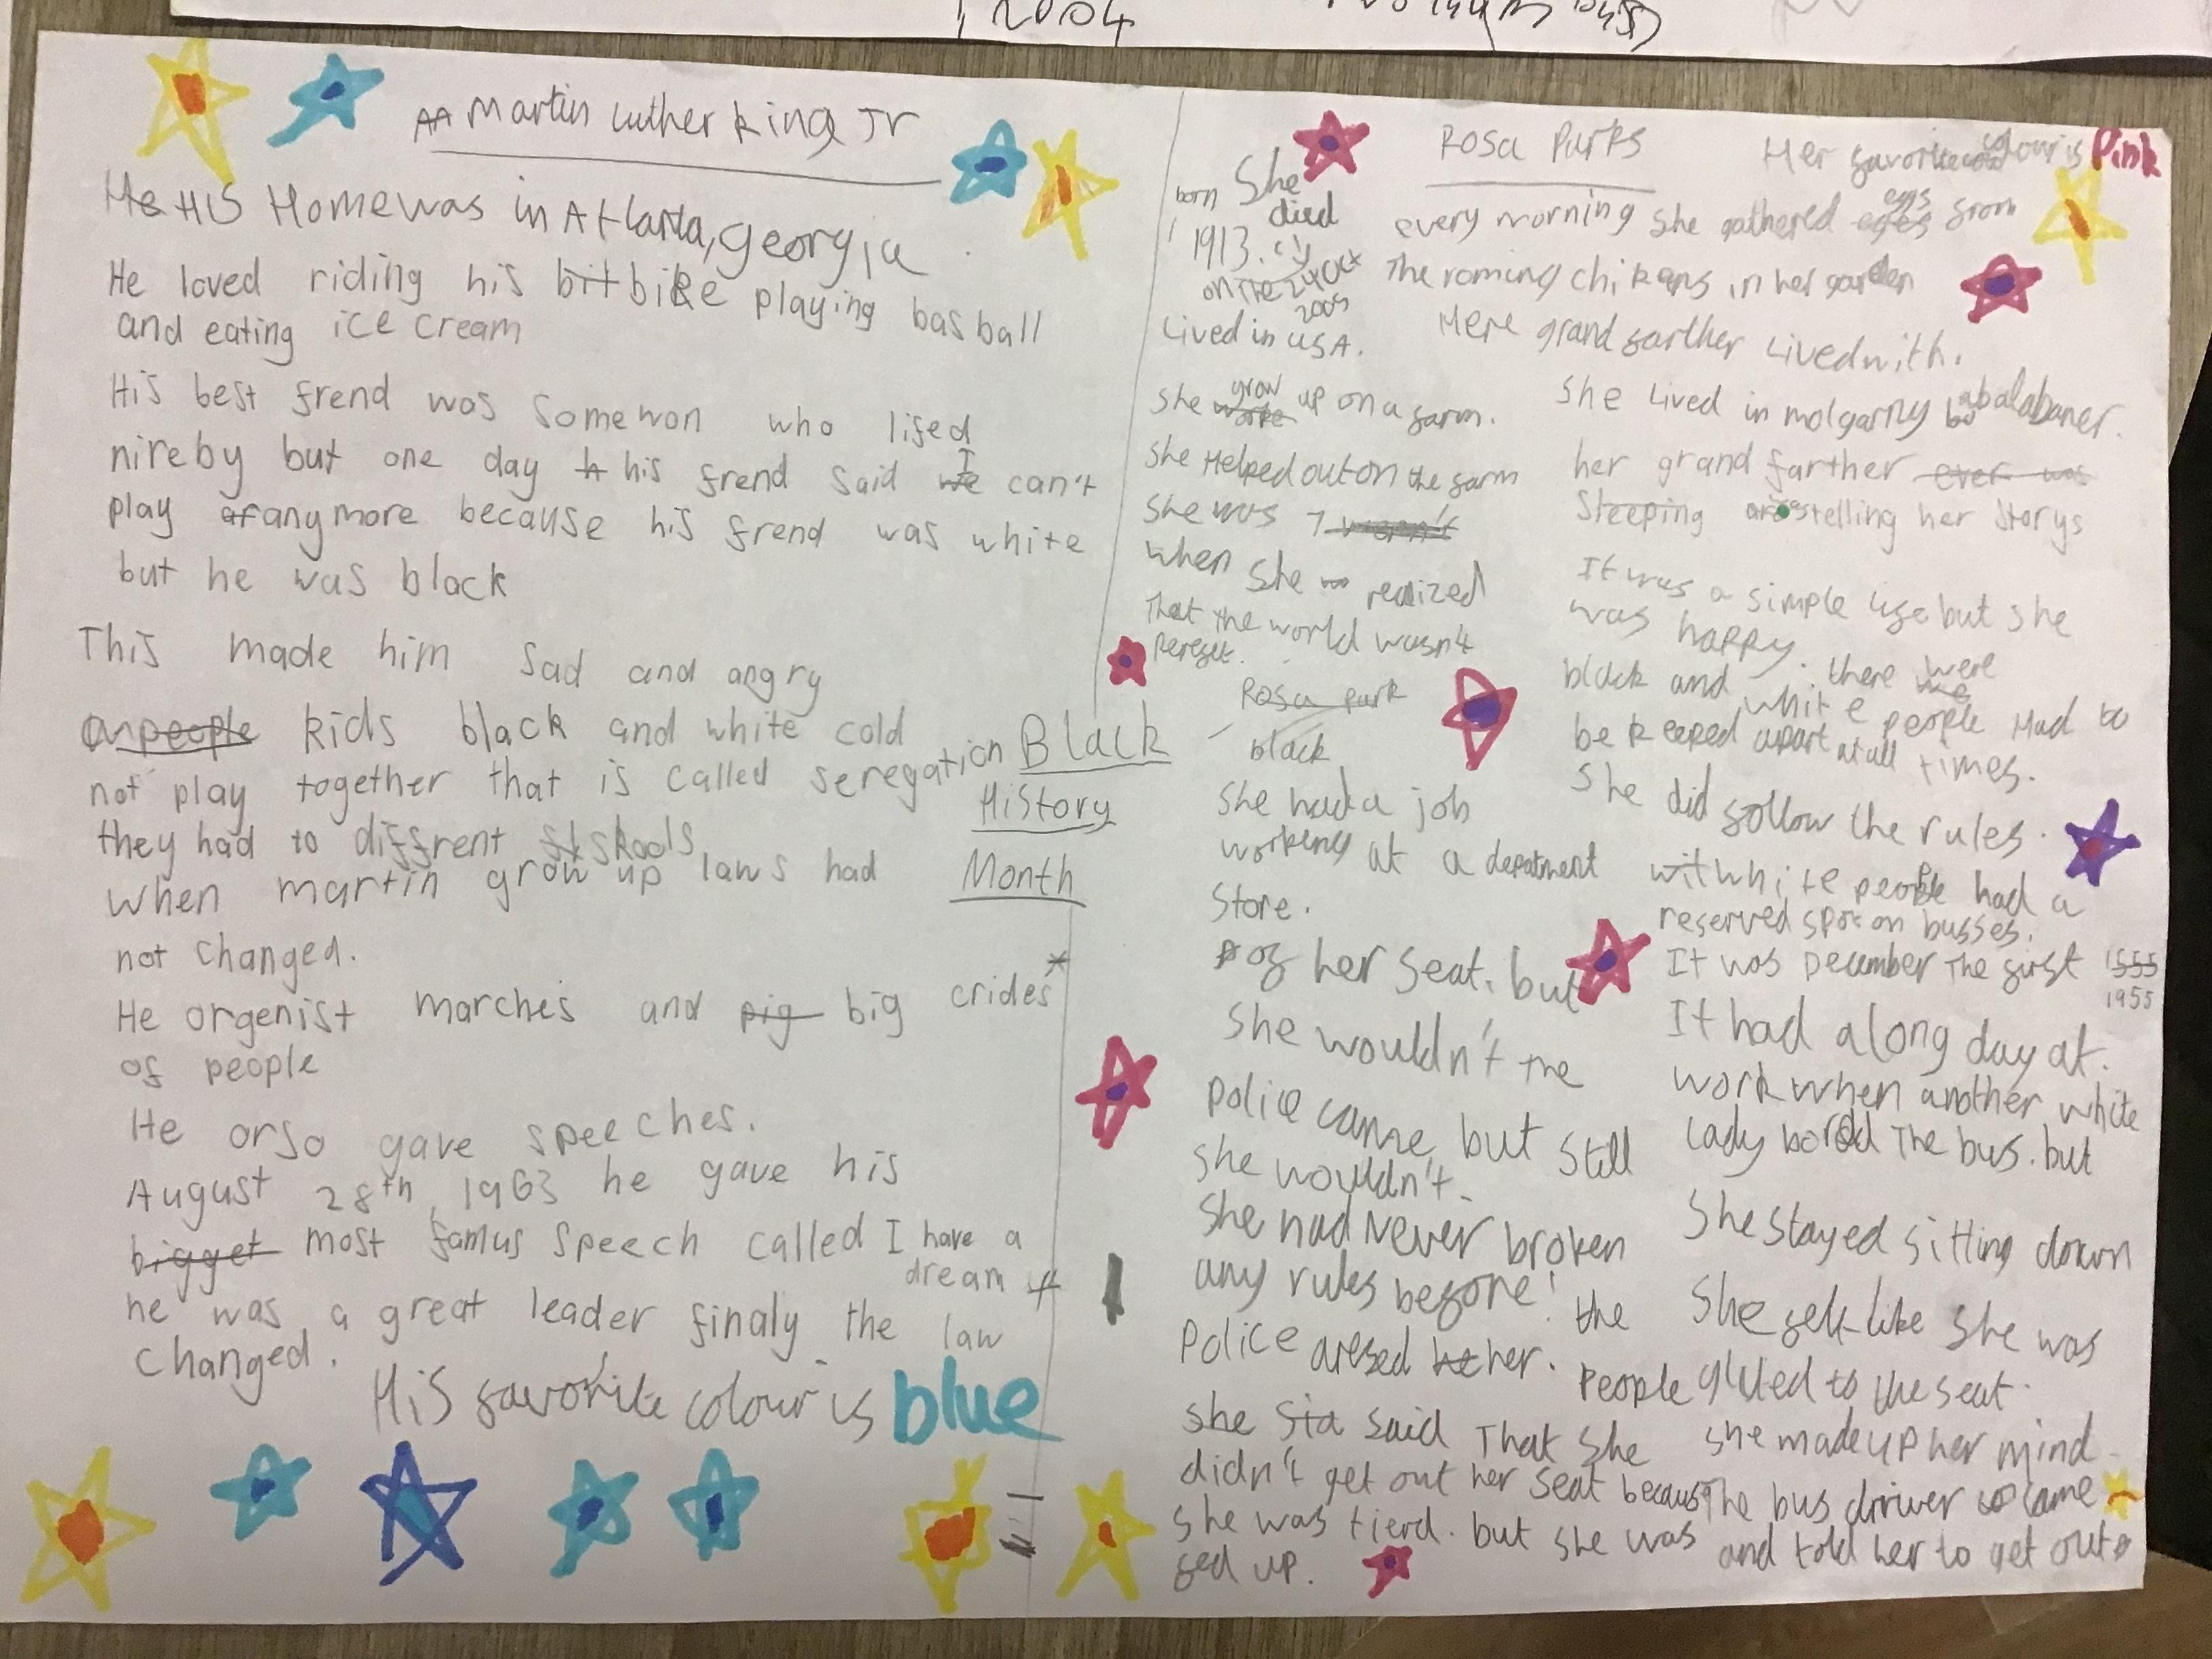 2004
Martin Luther King Jr
His Home was in Atlanta, georgia
He loved riding his bike playing basball
and eating ice cream
His best frend was somewon who lifed
nireby but one day his frend said I can't
play anymore because his frend was white
but he was black
This made him sad and angry
kids black and white cold
not play together that is called seregation
they had to diffrent skools
when martin grow up laws had
not changed.
He orgenist marches and big crides*
of people
He orso gave speeches.
August 28th, 1963 he gave his
most famus speech called I have a
dream
he was a great leader finaly the law
changed.
His favorite colour is blue
Black
History
Month
Rosa Parks
Her favorite colour is Pink
born She
died
1913.
on the 24 Oct
2005
Lived in USA.
She grow up on a farm.
She Helped out on the farm
She was 7
when She realized
That the world wasn't
Perefet.
Rosa Park
black
She had a job
working at a depatment
Store.
every morning she gathered eggs from
The roming chikens in her garden
Here grand farther Lived with.
She Lived in
her grand farther
telling her storys
It was a simple life but she
was happy. there were
black and white people Had to
be keeped apart at all times.
She did follow the rules.
white people had a
reserved spot on busses.
It was December The first 1955
It had a long day at.
work when another white
Lady bored The bus. but
She stayed sitting down
She felt like she was
glued to the seat.
she made up her mind
The bus driver came
and told her to get out
of her seat. but
She wouldn't the
Police came but still
she wouldn't.
She had Never broken
any rules before! the
Police aresed her.
People
she said That She
didn't get out her seat becaus
she was tierd. but she was
fed up.